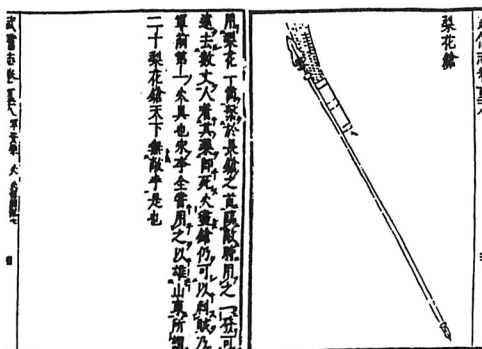 梨花鎗
用梨花一筒繫於長鎗之首臨敵時用之一發可
遠去數丈人着其藥即死火盡鎗仍可以刺賊乃
軍前第一火具也宋李全嘗用之以雄山東所謂
二十梨花鎗天下無敵手是也
武備志卷